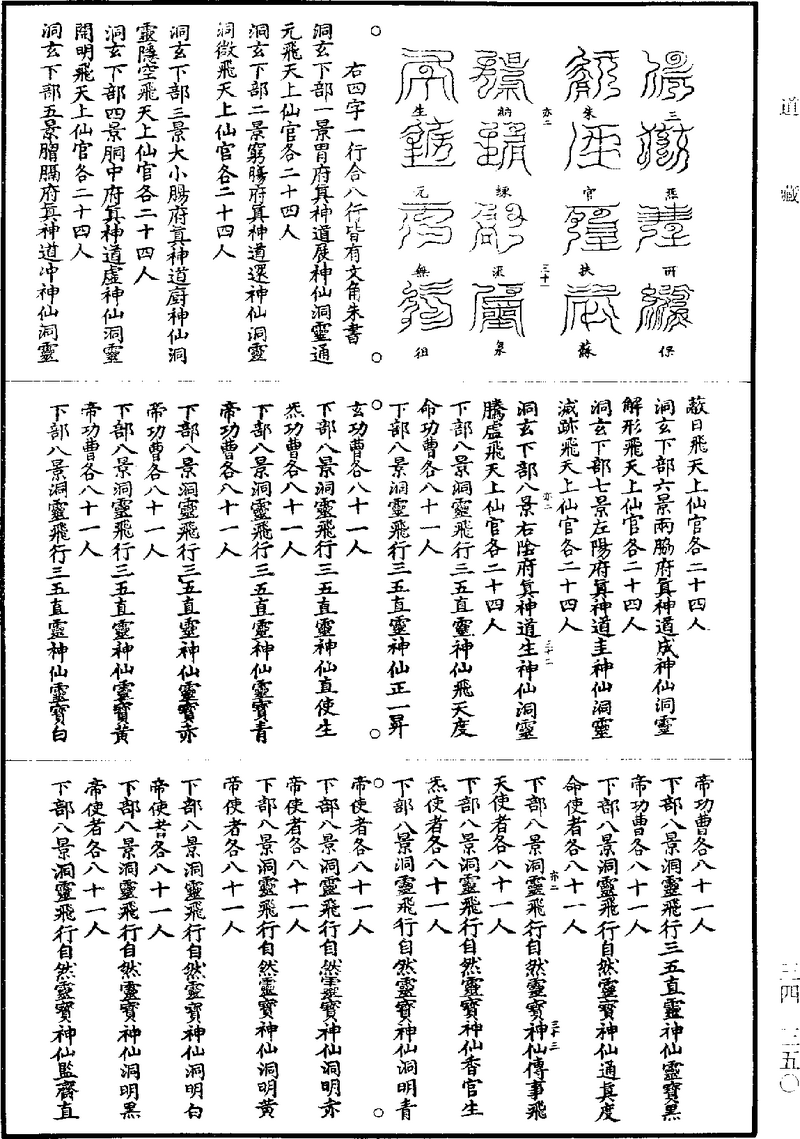 道藏
三 炁 所 保
朱 官 扶 蘇
亦二 三十一
納 練 泯 景
生 元 無 徂
右四字一行合八行皆有文角朱書
洞玄下部一景胃府真神道展神仙洞靈通
元飛天上仙官各二十四人
洞玄下部二景窮腸府真神道還神仙洞靈
洞微飛天上仙官各二十四人
洞玄下部三景大小腸府真神道廚神仙洞
靈隱空飛天上仙官各二十四人
洞玄下部四景胴中府真神道虛神仙洞靈
開明飛天上仙官各二十四人
洞玄下部五景膈府真神道沖神仙洞靈
蔽日飛天上仙官各二十四人
洞玄下部六景兩脇府真神道成神仙洞靈
解形飛天上仙官各二十四人
洞玄下部七景左陽府真神道圭神仙洞靈
滅跡飛天上仙官各二十四人
亦二 三十二
洞玄下部八景右陰府真神道生神仙洞靈
騰虛飛天上仙官各二十四人
下部八景洞靈飛行三五直靈神仙飛天度
命功曹各八十一人
下部八景洞靈飛行三五直靈神仙正一昇
玄功曹各八十一人
下部八景洞靈飛行三五直靈神仙直使生
炁功曹各八十一人
下部八景洞靈飛行三五直靈神仙靈寶青
帝功曹各八十一人
下部八景洞靈飛行三五直靈神仙靈寶赤
帝功曹各八十一人
下部八景洞靈飛行三五直靈神仙靈寶黃
帝功曹各八十一人
下部八景洞靈飛行三五直靈神仙靈寶白
帝功曹各八十一人
下部八景洞靈飛行三五直靈神仙靈寶黑
帝功曹各八十一人
下部八景洞靈飛行自然靈寶神仙通真度
命使者各八十一人
亦二 三十三
下部八景洞靈飛行自然靈寶神仙傳事飛
天使者各八十一人
下部八景洞靈飛行自然靈寶神仙香官生
炁使者各八十一人
下部八景洞靈飛行自然靈寶神仙洞明青
帝使者各八十一人
下部八景洞靈飛行自然靈寶神仙洞明赤
帝使者各八十一人
下部八景洞靈飛行自然靈寶神仙洞明黃
帝使者各八十一人
下部八景洞靈飛行自然靈寶神仙洞明白
帝使者各八十一人
下部八景洞靈飛行自然靈寶神仙洞明黑
帝使者各八十一人
下部八景洞靈飛行自然靈寶神仙監齋直
三四 三五〇